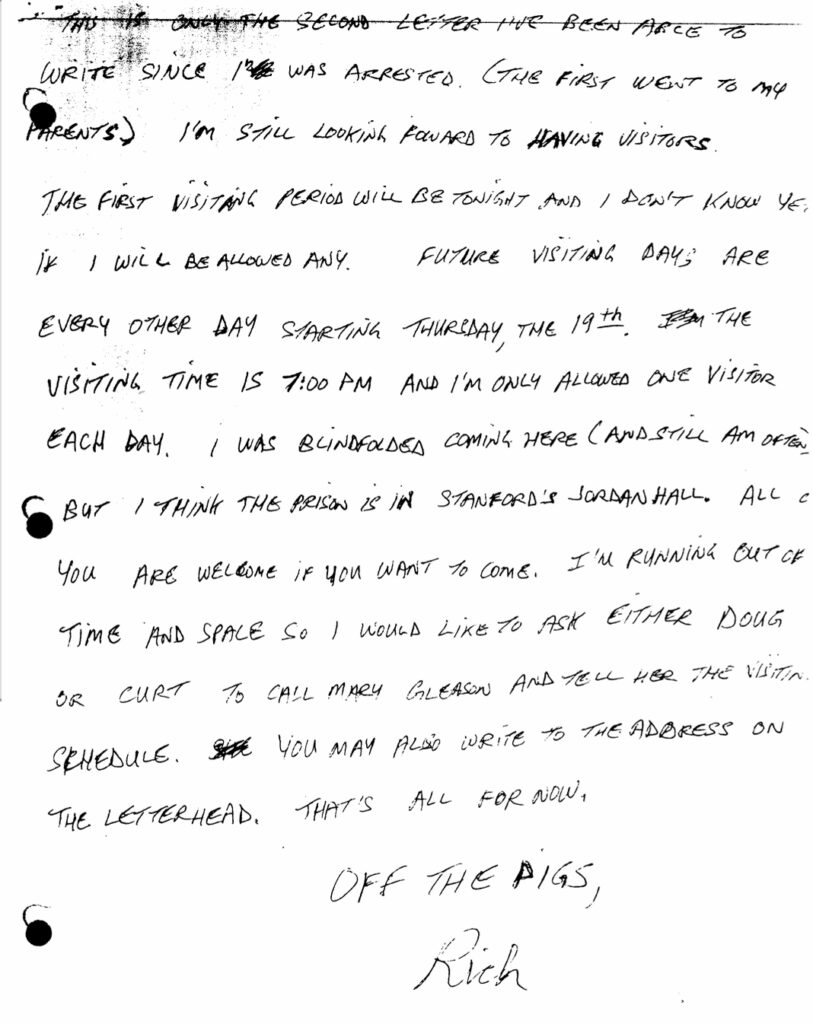 THIS IS ONLY THE SECOND LETTER I'VE BEEN ABLE TO
WRITE SINCE I WAS ARRESTED. (THE FIRST WENT TO MY
PARENTS) I'M STILL LOOKING FOWARD TO HAVING VISITORS.
THE FIRST VISITING PERIOD WILL BE TONIGHT AND I DON'T KNOW YE
IF I WILL BE ALLOWED ANY. FUTURE VISITING DAYS ARE
EVERY OTHER DAY STARTING THURSDAY, THE 19th. THE
VISITING TIME IS 7:00 PM AND I'M ONLY ALLOWED ONE VISITOR
EACH DAY. I WAS BLINDFOLDED COMING HERE (AND STILL AM OFTEN
BUT I THINK THE PRISON IS IN STANFORD'S JORDAN HALL. ALL
YOU ARE WELCOME IF YOU WANT TO COME. I'M RUNNING OUT OF
TIME AND SPACE SO I WOULD LIKE TO ASK EITHER DOUG
OR CURT TO CALL MARY GLEASON AND TELL HER THE VISITIN
SCHEDULE. YOU MAY ALSO WRITE TO THE ADDRESS ON
THE LETTERHEAD. THAT'S ALL FOR NOW.
OFF THE PIGS,
Rich